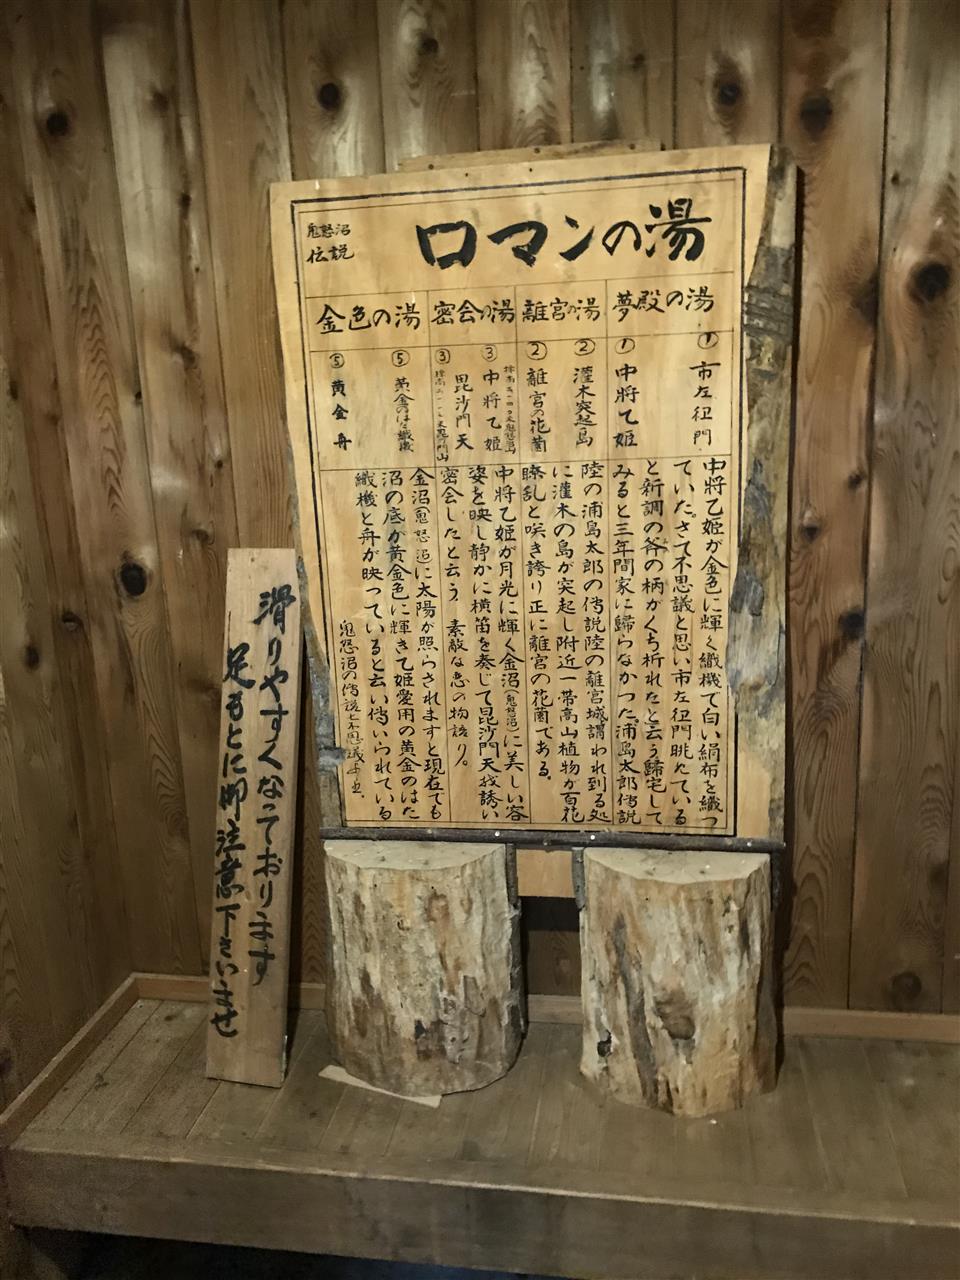 鬼怒沼
伝説
ロマンの湯
夢殿の湯
離宮の湯
密会の湯
金色の湯
① 市左衽門
① 中将乙姫
② 灌木突起島
② 離宮の花園
③ 中将乙姫
毘沙門天
③
⑤ 黄金のはた織機
⑤ 黄金舟
中将乙姫が金色に輝く織機で白い絹布を織つ
ていた。さて不思議と思い市左衽門眺めている
と新調の斧の柄がくち折れたと云う歸宅して
みると三年間家に歸らなかつた。浦島太郎傳説
陸の浦島太郎の傳説陸の離宮城謂われ到る処
に灌木の島が突起し附近一帯高山植物が百花
瞭乱と咲き誇り正に離宮の花園である。
中将乙姫が月光に輝く金沼(鬼怒沼)に美しい容
姿を映し静かに横笛を奏じて毘沙門天我誘い
密会したと云う。素敵な恋の物語り。
金沼(鬼怒沼)に太陽が照らされますと現在でも
沼の底が黄金色に輝きて姫愛用の黄金のはた
織機と舟が映っていると云い傳いられている
鬼怒沼の傳説七不思議
滑りやすくなっております
足もとに御注意下さいませ